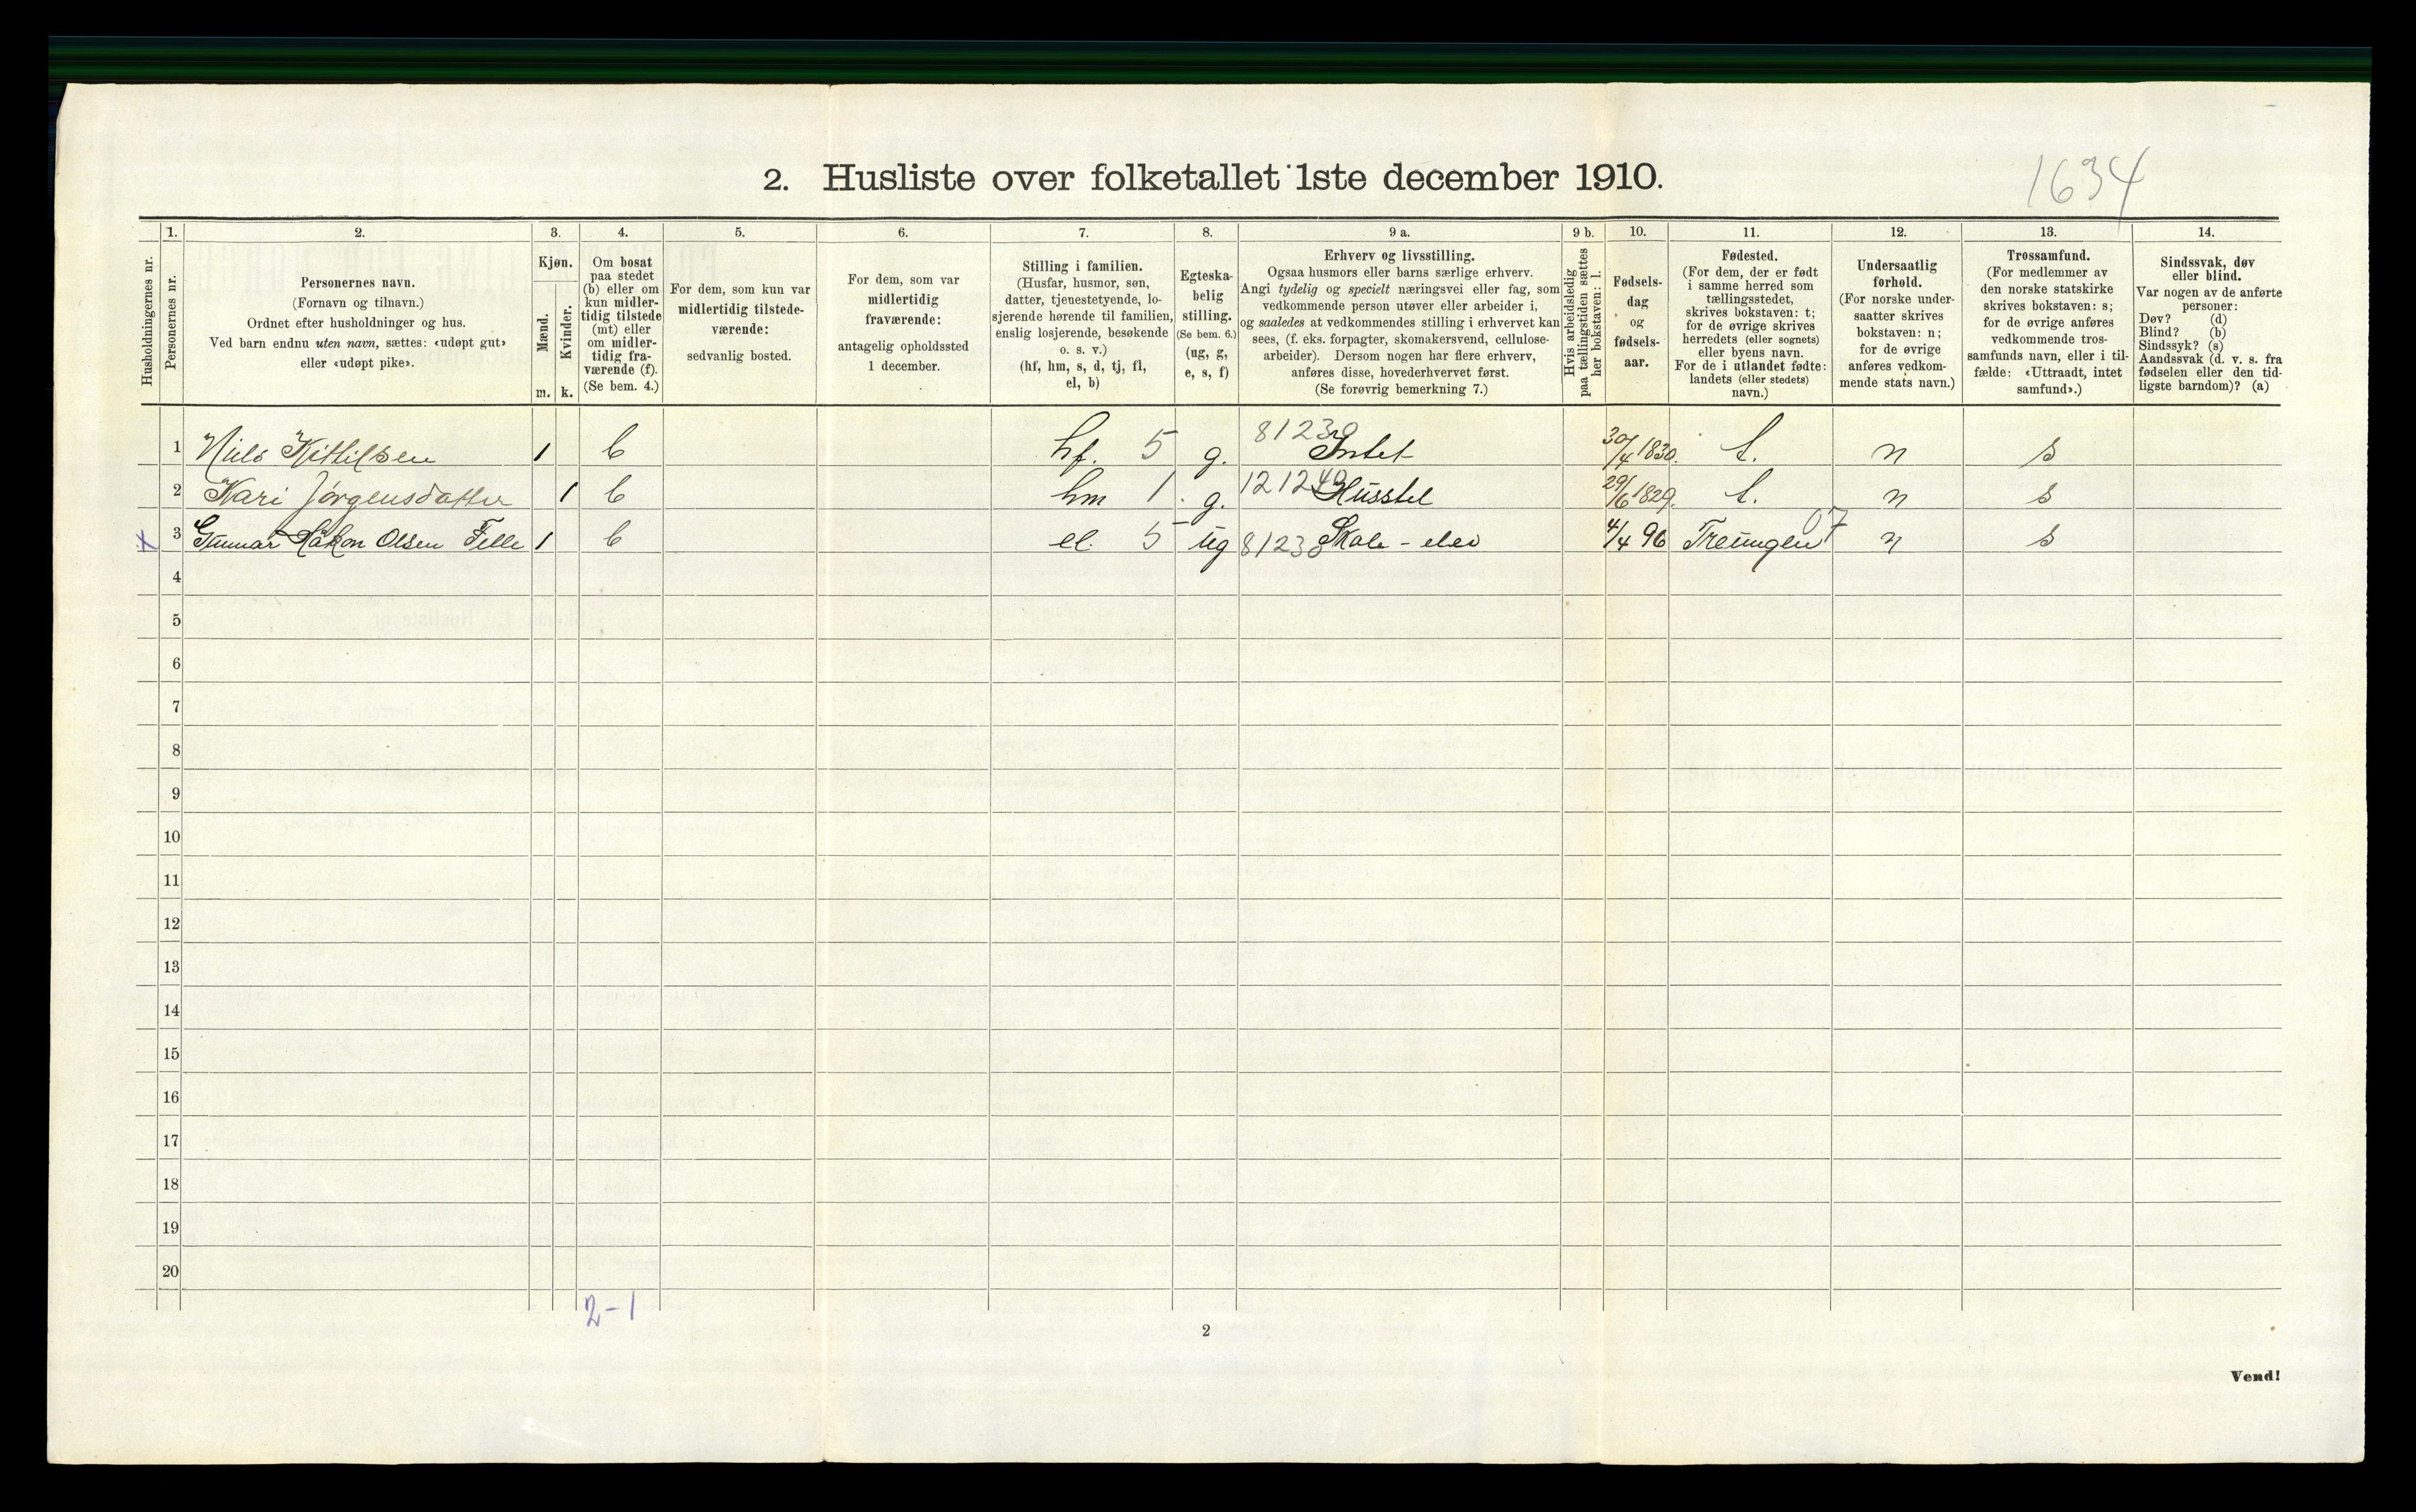 2. Husliste over folketallet 1ste december 1910.
1634
1. 2. 3. 4. 5. 6. 7. 8. 9 a. 9 b. 10. 11. 12. 13. 14.
Husholdningernes nr.
Personernes nr.
Personernes navn.
(Fornavn og tilnavn.)
Ordnet efter husholdninger og hus.
Ved barn endnu uten navn, sættes: «udøpt gut»
eller «udøpt pike».
Kjøn.
Mænd.
Kvinder.
m. k.
Om bosat
paa stedet
(b) eller om
kun midler-
tidig tilstede
(mt) eller
om midler-
tidig fra-
værende (f).
(Se bem. 4.)
For dem, som kun var
midlertidig tilstede-
værende:
sedvanlig bosted.
For dem, som var
midlertidig
fraværende:
antagelig opholdssted
1 december.
Stilling i familien.
(Husfar, husmor, søn,
datter, tjenestetyende, lo-
sjerende hørende til familien,
enslig losjerende, besøkende
o. s. v.)
(hf, hm, s, d, tj, fl,
el, b)
Egteska-
belig
stilling.
(Se bem. 6.)
(ug, g,
e, s, f)
Erhverv og livsstilling.
Ogsaa husmors eller barns særlige erhverv.
Angi tydelig og specielt næringsvei eller fag, som
vedkommende person utøver eller arbeider i,
og saaledes at vedkommendes stilling i erhvervet kan
sees, (f. eks. forpagter, skomakersvend, cellulose-
arbeider). Dersom nogen har flere erhverv,
anføres disse, hovederhvervet først.
(Se forøvrig bemerkning 7.)
Hvis arbeidsledig
paa tællingstiden sættes
her bokstaven: l.
Fødsels-
dag
og
fødsels-
aar.
Fødested.
(For dem, der er født
i samme herred som
tællingsstedet,
skrives bokstaven: t;
for de øvrige skrives
herredets (eller sognets)
eller byens navn.
For de i utlandet fødte:
landets (eller stedets)
navn.)
Undersaatlig
forhold.
(For norske under-
saatter skrives
bokstaven: n;
for de øvrige
anføres vedkom-
mende stats navn.)
Trossamfund.
(For medlemmer av
den norske statskirke
skrives bokstaven: s;
for de øvrige anføres
vedkommende tros-
samfunds navn, eller i til-
fælde: «Uttraadt, intet
samfund».)
Sindssvak, døv
eller blind.
Var nogen av de anførte
personer:
Døv? (d)
Blind? (b)
Sindssyk? (s)
Aandssvak (d. v. s. fra
fødselen eller den tid-
ligste barndom)? (a)
1 Niels Kittilsen 1 b hf. 5 g. 81230 Intet 30/4 1830. t. n s
2 Kari Jørgensdatter 1 b hm 1. g. 121240 Husstel 29/6 1829. t. n s
x 3 Gunnar Håkon Olsen Felle 1 b el. 5 ug 81230 Skole-elev 4/4 96 Treungen 07 n s
4
5
6
7
8
9
10
11
12
13
14
15
16
17
18
19
20
2-1
2
Vend!